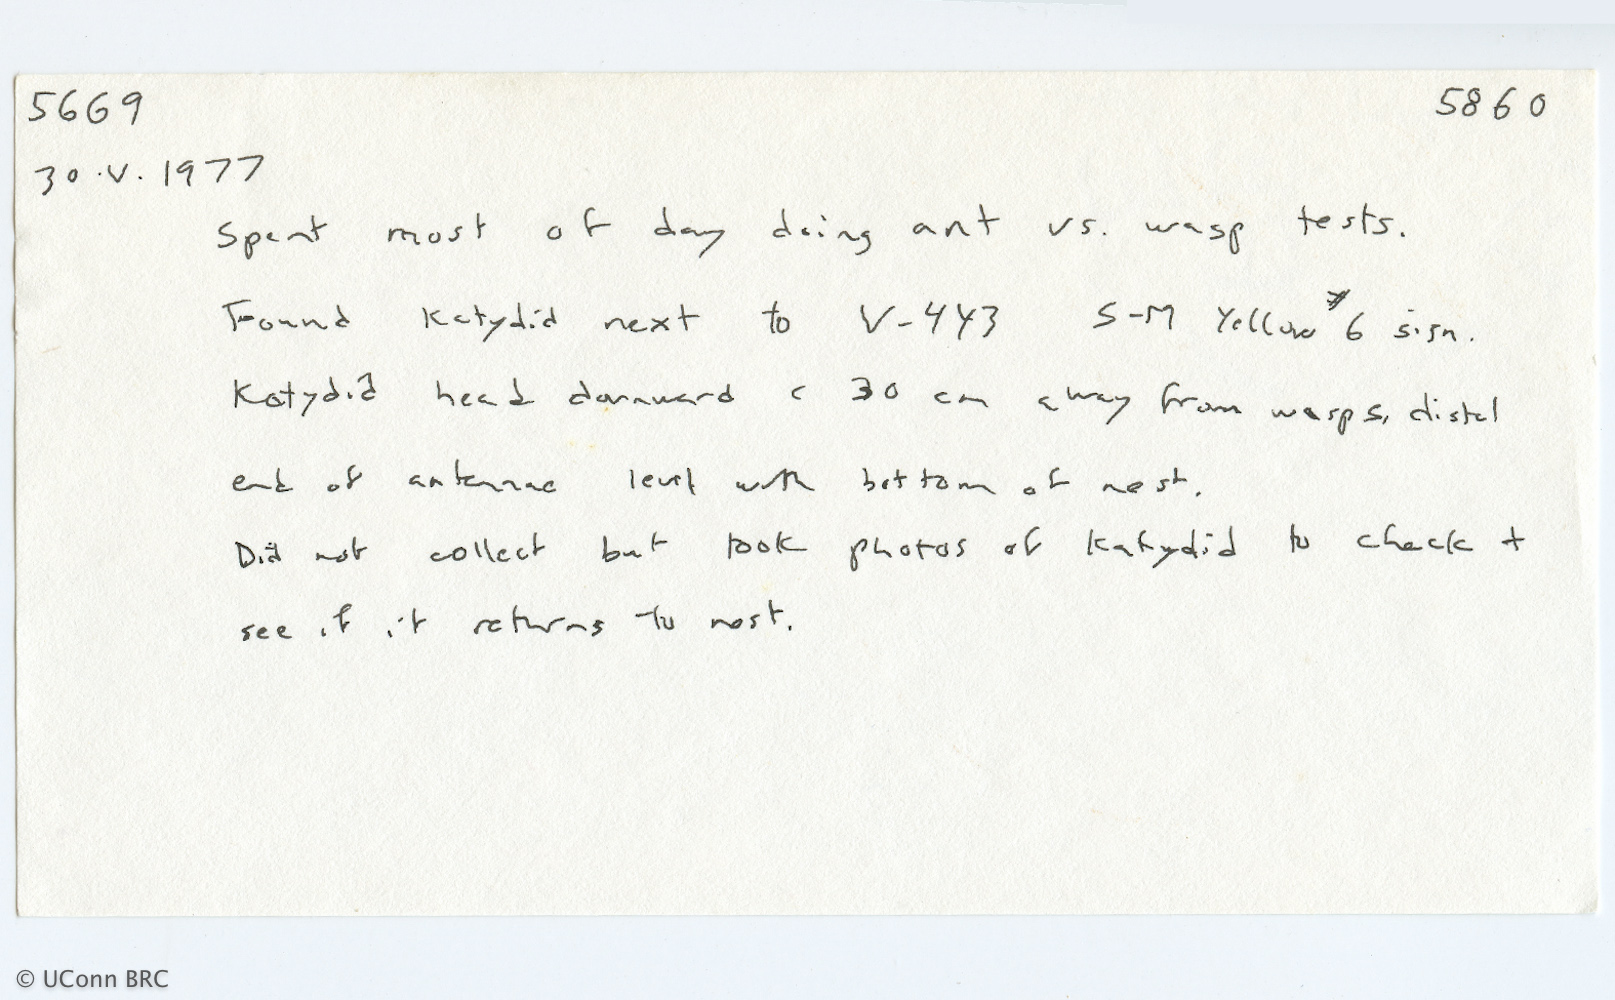 5669 5860
30.V.1977
Spent most of day doing ant vs. wasp tests.
Found Katydid next to V-443 S-M Yellow #6 sign.
Katydid head downward c 30 cm away from wasps, distal
end of antennae level with bottom of nest.
Did not collect but took photos of katydid to check +
see if it returns to nest.
© UConn BRC